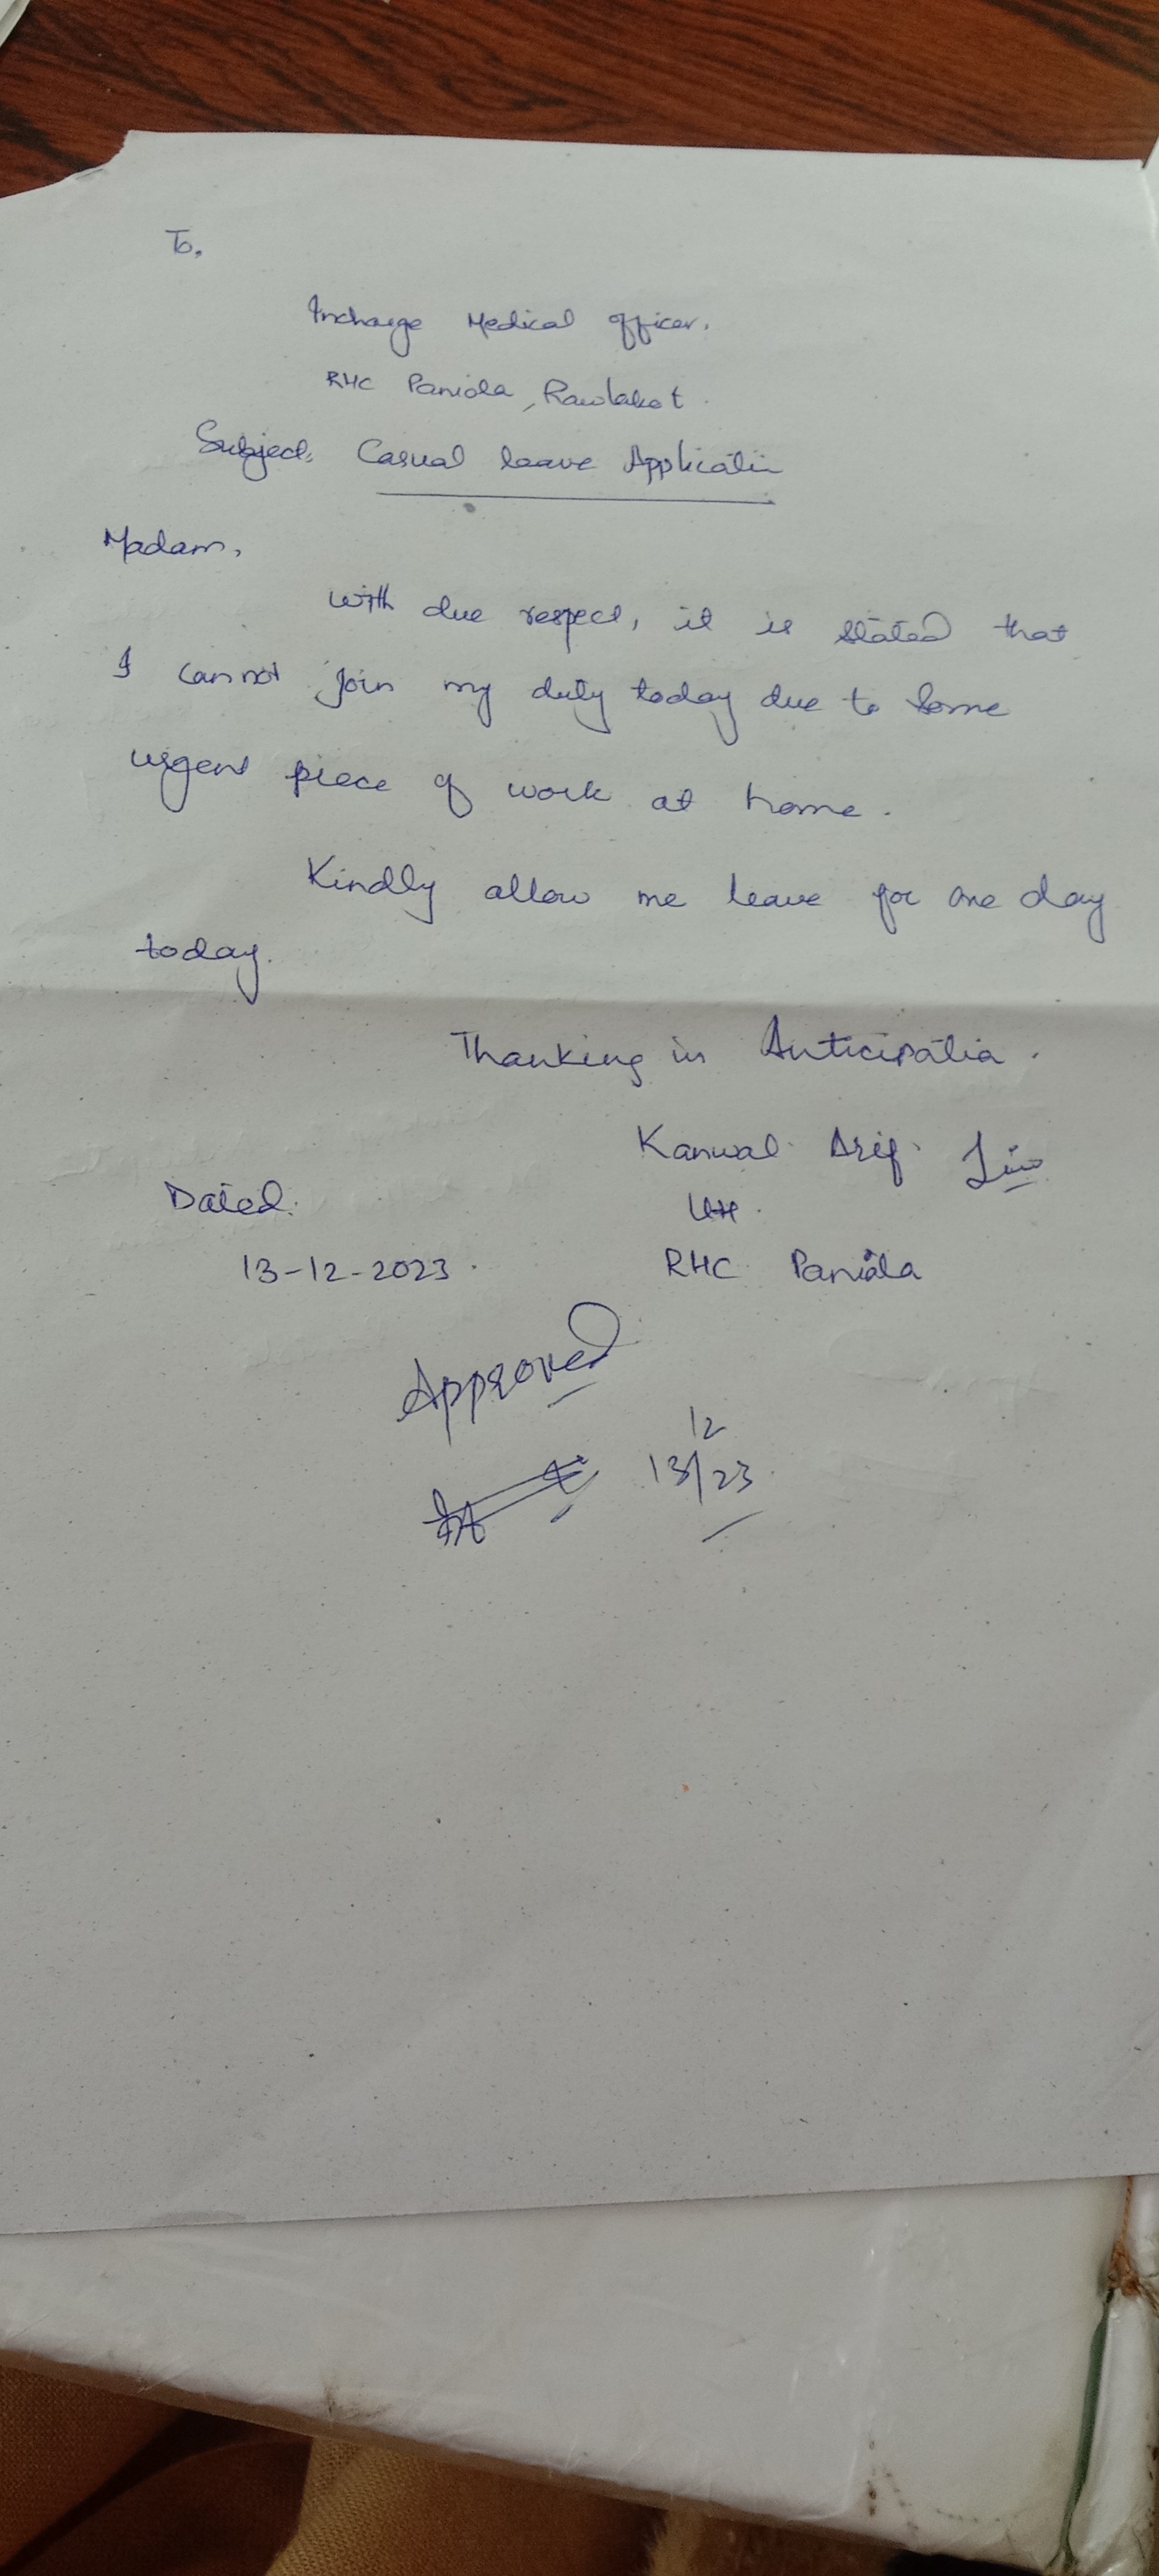 To,
Incharge Medical Officer.
RHC Paniola, Rawlakot.
Subject: Casual leave Application
Madam,
With due respect, it is stated that
I cannot join my duty today due to some
urgent piece of work at home.
Kindly allow me leave for one day
today.
Thanking in Anticipation.
Kanwal Arif.
Dated:
13-12-2023.
RHC Paniola
Approved
12
13/23